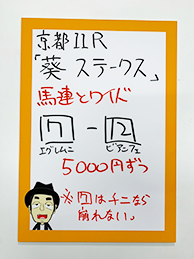 京都11R
「葵 ステークス」
馬連とワイド
7 - 12
エグレムニ ビアンフェ
5000円ずつ
※7は千二なら
崩れない。